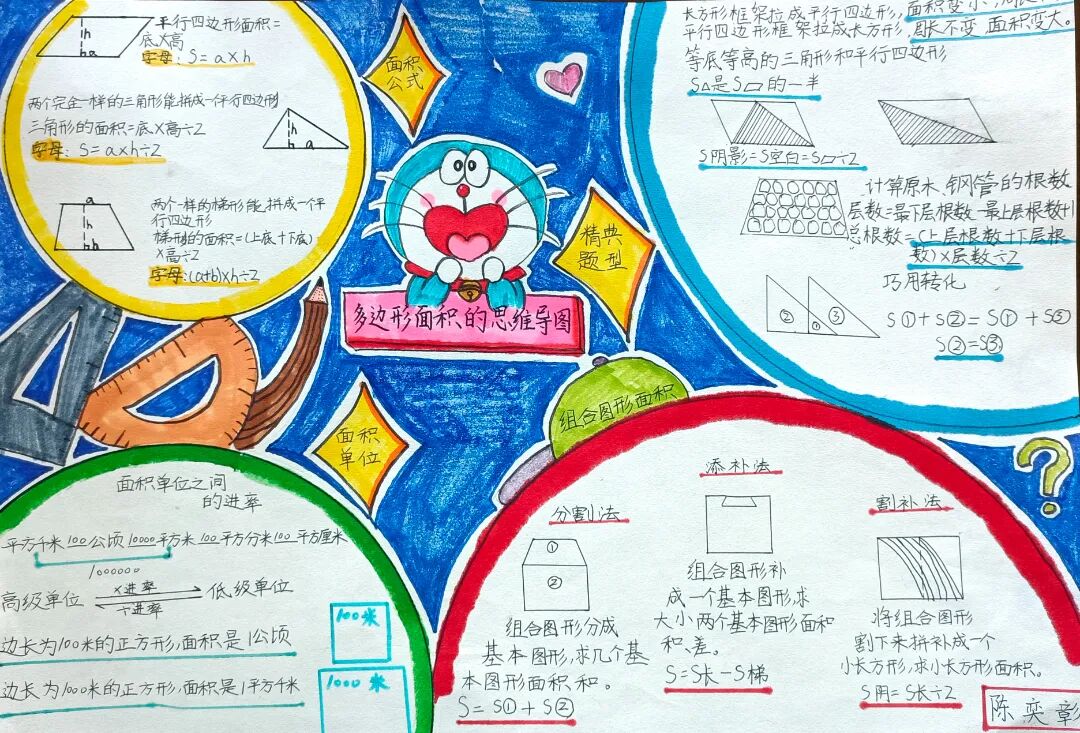 平行四边形面积=
底×高
字母: S=a×h
h
a
两个完全一样的三角形能拼成一个平行四边形
三角形的面积=底×高÷2
字母: S=a×h÷2
h
a
两个一样的梯形能拼成一个平
行四边形
梯形的面积=(上底+下底)
×高÷2
字母:(a+b)×h÷2
a
h
b
面积
公式
多边形面积的思维导图
精典
题型
长方形框架拉成平行四边形,面积变小,
平行四边形框架拉成长方形,周长不变 面积变大。
等底等高的三角形和平行四边形
S△是S▱的一半
S阴影=S空白=S▱÷2
计算原木,钢管的根数
层数=最下层根数-最上层根数+1
总根数=(上层根数+下层根
数)×层数÷2
巧用转化
② ① ③
S①+S②=S①+S③
S②=S③
面积
单位
面积单位之间
的进率
平方千米 100 公顷 10000 平方米 100 平方分米 100 平方厘米
1000000
高级单位 ×进率 低级单位
÷进率
边长为100米的正方形,面积是1公顷
100米
边长为1000米的正方形,面积是1平方千米
1000米
组合图形面积
分割法
①
②
组合图形分成
基本图形,求几个基
本图形面积和。
S=S①+S②
添补法
组合图形补
成一个基本图形,求
大小两个基本图形面积
和、差。
S=S长-S梯
割补法
将组合图形
割下来拼补成一个
小长方形,求小长方形面积。
S阴=S长÷2
陈奕彰